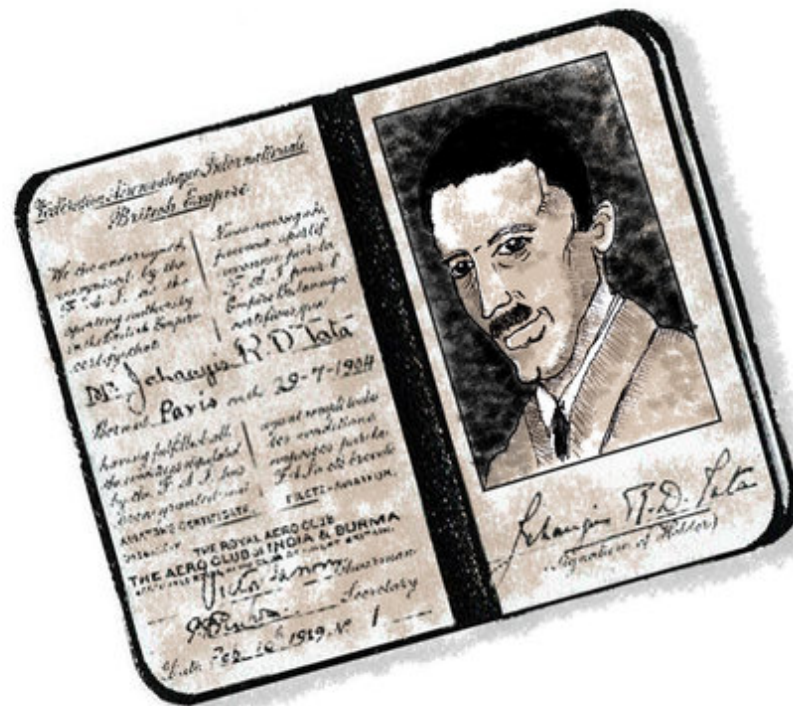 Fédération Aéronautique Internationale
British Empire
We the undersigned
recognised by the
F. A. I. as the
sporting authority
in the British Empire
certify that
Nous soussignés
pouvoir sportif
reconnu par la
F. A. I. pour l'
Empire Britannique
certifions que
Mr. Jehangir R. D. Tata
Born at Paris on the 29-7-1904
having fulfilled all
the
stipulated
by the F. A. I. has
been granted
AVIATOR'S CERTIFICATE
ayant rempli toutes
les conditions
imposées par la
F. A. I. a été
THE ROYAL AERO CLUB
THE AERO CLUB OF INDIA & BURMA
Chairman
Secretary
Date Feb. 10th 1929. No 1
Jehangir R. D. Tata
(Signature of Holder)